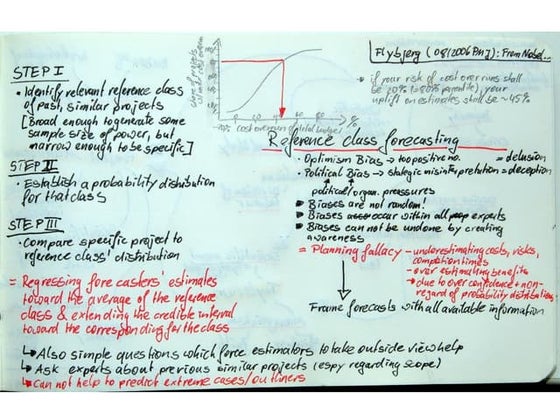 Flyvbjerg (08/2006 PMJ): From Nobel...
STEP I
• Identify relevant reference class
of past, similar projects
[Broad enough to generate some
sample size of power, but
narrow enough to be specific]
STEP II
• Establish a probability distribution
for that class
STEP III
• Compare specific project to
reference class' distribution
= Regressing forecasters' estimates
toward the average of the reference
class & extending the credible interval
toward the corresponding for the class
↳ Also simple questions which force estimators to take outside view help
↳ Ask experts about previous similar projects (espy regarding scope)
↳ can not help to predict extreme cases/outliners
cost overrun
• if your risk of cost overruns shall
be 20% (=80% percentile), your
uplift on estimates shall be ~45%
Reference class forecasting
• Optimism Bias → too positive = delusion
• Political Bias → strategic misinterpretation = deception
political organ. pressures
▶ Biases are not random!
▶ Biases occur within all experts
▶ Biases can not be undone by creating
awareness
= Planning fallacy – underestimating costs, risks,
completion times
– over estimating benefits
→ due to over confidence + non-
regard of probability distributions
Frame forecasts with all available information